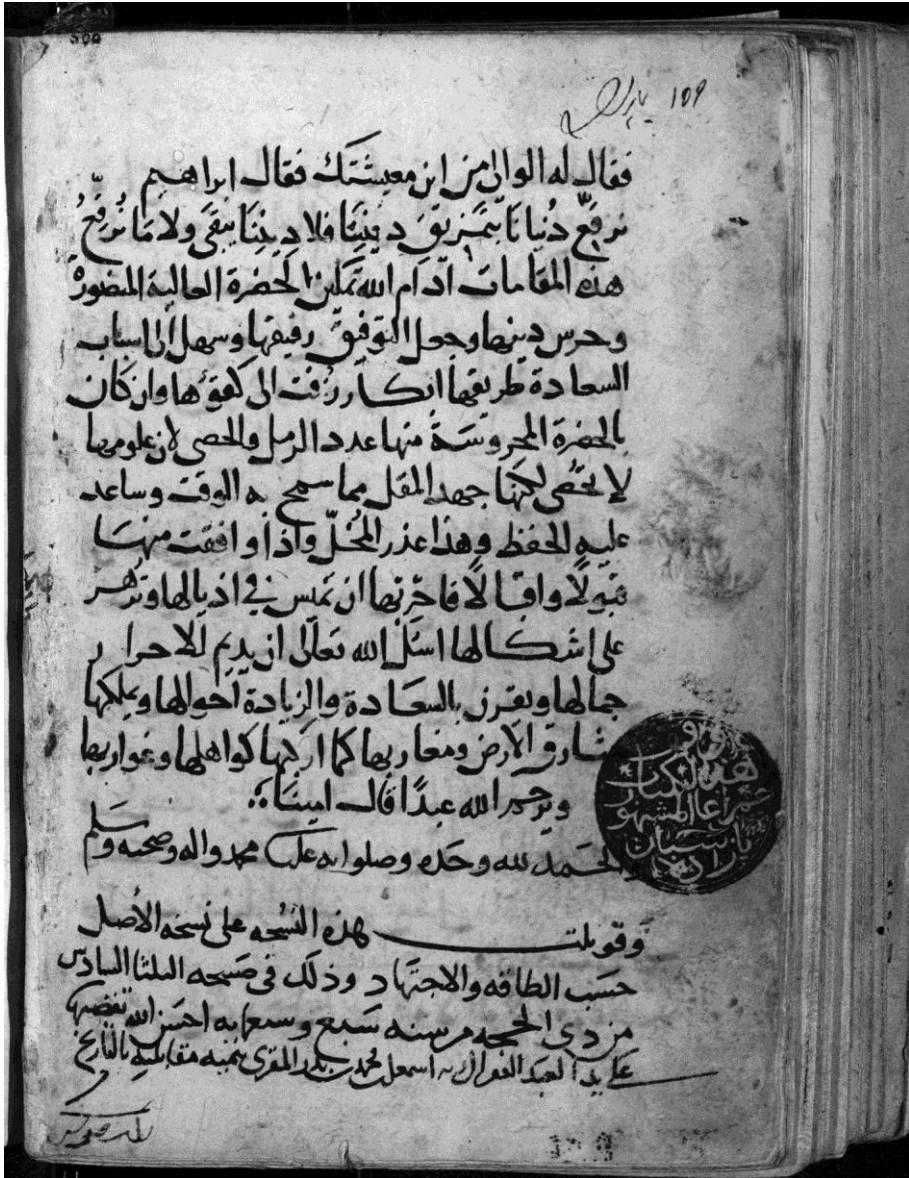 109
فقال له الوالى من اين معيشتك فقال ابراهيم
نرقّع دُنيانا بتمزيق ديننا فلا ديننا يبقى ولا ما نرقّعُ
هذه المقامات ادام الله تمكن الحضرة العالية المنصورة
وحرس دينها وجعل التوفيق رفيقها وسهل الى اسباب
السعادة طريقها ابكار زُفت الى كفؤها وان كان
بالحضرة المحروسة منها عدد الرمل والحصى لان علومها
لا تحصى لكنها جهد المقل مما سمح به الوقت وساعد
عليه الحفظ وهذا عذر المُخلّ واذا وافقت منها
قبولًا واقبالًا فاخرتها ان تميس في اذيالها وتزهر
على اشكالها اسئل الله تعالى ان يديم للاحرار
جمالها ويقرن بالسعادة والزيادة احوالها ويملكها
مشارق الارض ومغاربها كما اركبها كواهلها وغواربها
ويرحم الله عبدًا قال امينا
الحمد لله وحده وصلواته على محمد واله وصحبه وسلم
وقوبلت هذه النسخه على نسخه الأصل
حسب الطاقه والاجتهاد وذلك فى صبيحه الثلثا السادس
من ذى الحجه من سنه سبع وسبعمايه احسن الله تقضيها
على يد العبد الفقير الى الله اسمعيل محمد المقرى مقابلته بالتاريخ